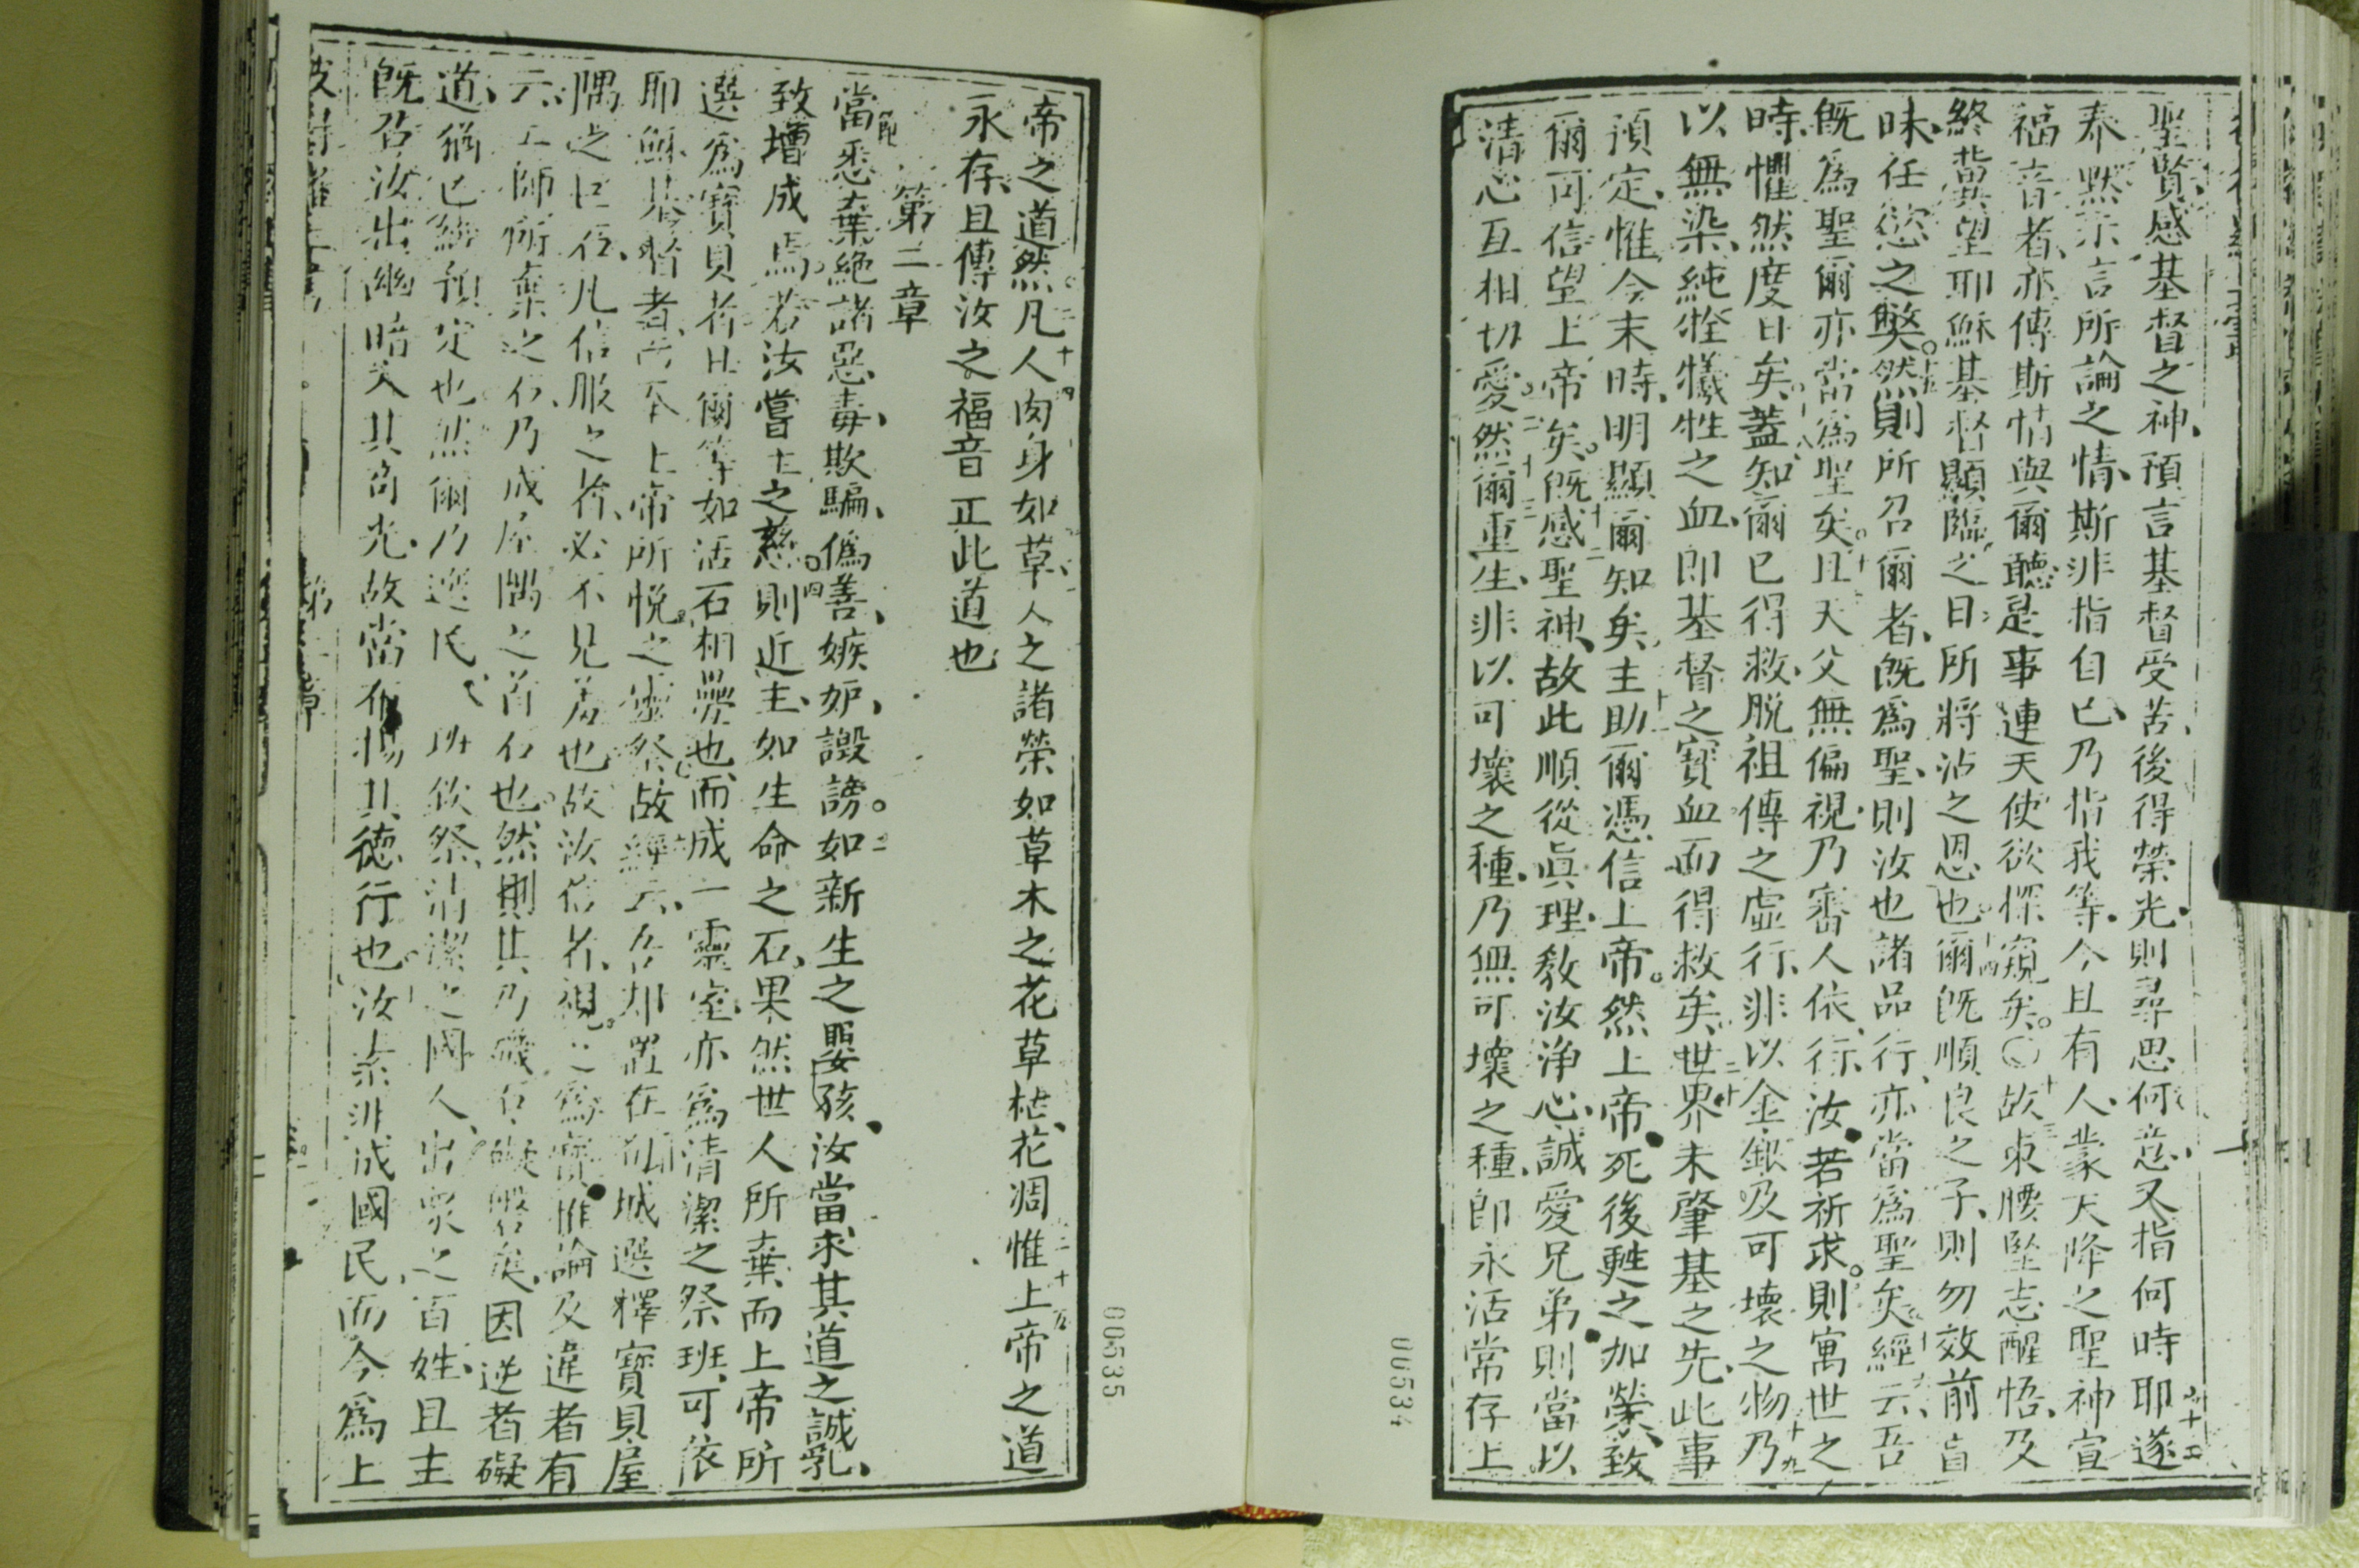 聖賢、感基督之神、預言基督受苦、後得榮光、則尋思何意、又指何時耶、遂
泰默示言所論之情、斯非指自己、乃指我等、今且有人、蒙天降之聖神宣
福音者、亦傳斯情與爾聽、是事連天使欲探窺矣。○故束腰堅志醒悟、及
終冀望耶穌基督顯臨之日、所將沾之恩也。爾既順良之子、則勿效前盲
昧、任慾之獘。然則所召爾者、既爲聖、則汝也諸品行、亦當爲聖矣。經云、吾
既爲聖爾亦當爲聖矣。且天父無偏視、乃審人依行、汝若祈求。則寓世之
時、懼然度日矣。蓋知爾已得救、脱祖傳之虛行、非以金銀及可壞之物、乃
以無染、純牷犧牲之血、即基督之寶血而得救矣、世界未肇基之先、此事
預定、惟今末時、明顯爾知矣、主助爾憑信上帝。然上帝死後甦之加榮、致
爾可信望上帝矣。既感聖神、故此順從眞理、敎汝淨心、誠愛兄弟則當以
清心互相切愛。然爾重生、非以可壞之種、乃無可壞之種、卽永活常存上
00534
帝之道然凡人肉身如草、人之諸榮如草木之花草枯、花凋惟上帝之道
永存、且傳汝之福音正此道也
第二章
當悉棄絶諸惡毒、欺騙、僞善、嫉妒、譭謗。如新生之嬰孩、汝當求其道之誠乳、
致增成焉。若汝嘗主之慈則近主、如生命之石、果然世人所棄、而上帝所
選爲寶貝者且爾等如活石相疊也、而成一靈室、亦爲清潔之祭班、可依
耶穌基督者、上帝所悅之靈祭、故經云、吾却置在城選釋寶貝屋
隅之巨石、凡信服之者、必不見羞也故汝信者、視之爲寶惟論及違者有
云、工師所棄之石、乃成屋隅之首石也。然則其乃礙磐矣、因逆者礙
道、猶已預定也。然爾乃選民、班欲祭、清潔之國人、出衆之百姓、且主
既召汝出幽暗入其光、故當布揚其德行也、汝素非成國民、而今爲上
00535